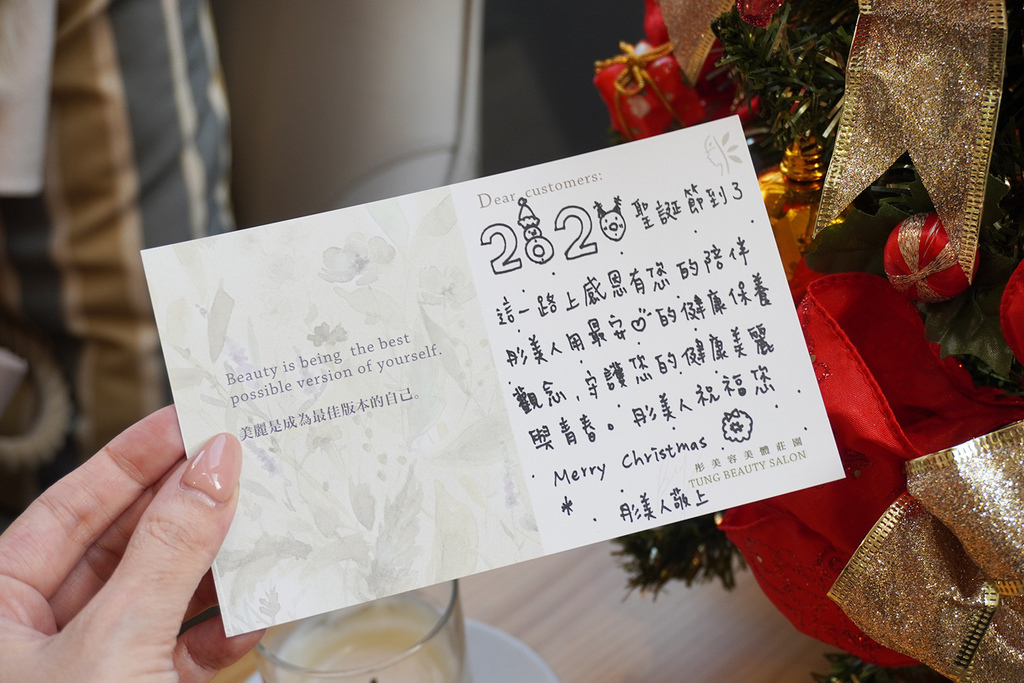 Beauty is being the best
possible version of yourself.
美麗是成為最佳版本的自己。
Dear customers:
2020 聖誕節到3
這一路上感恩有您的陪伴
彤美人用最安心的健康保養
觀念,守護您的健康美麗
與青春。彤美人祝福您
Merry Christmas
彤美容美體莊園
TUNG BEAUTY SALON
彤美人敬上